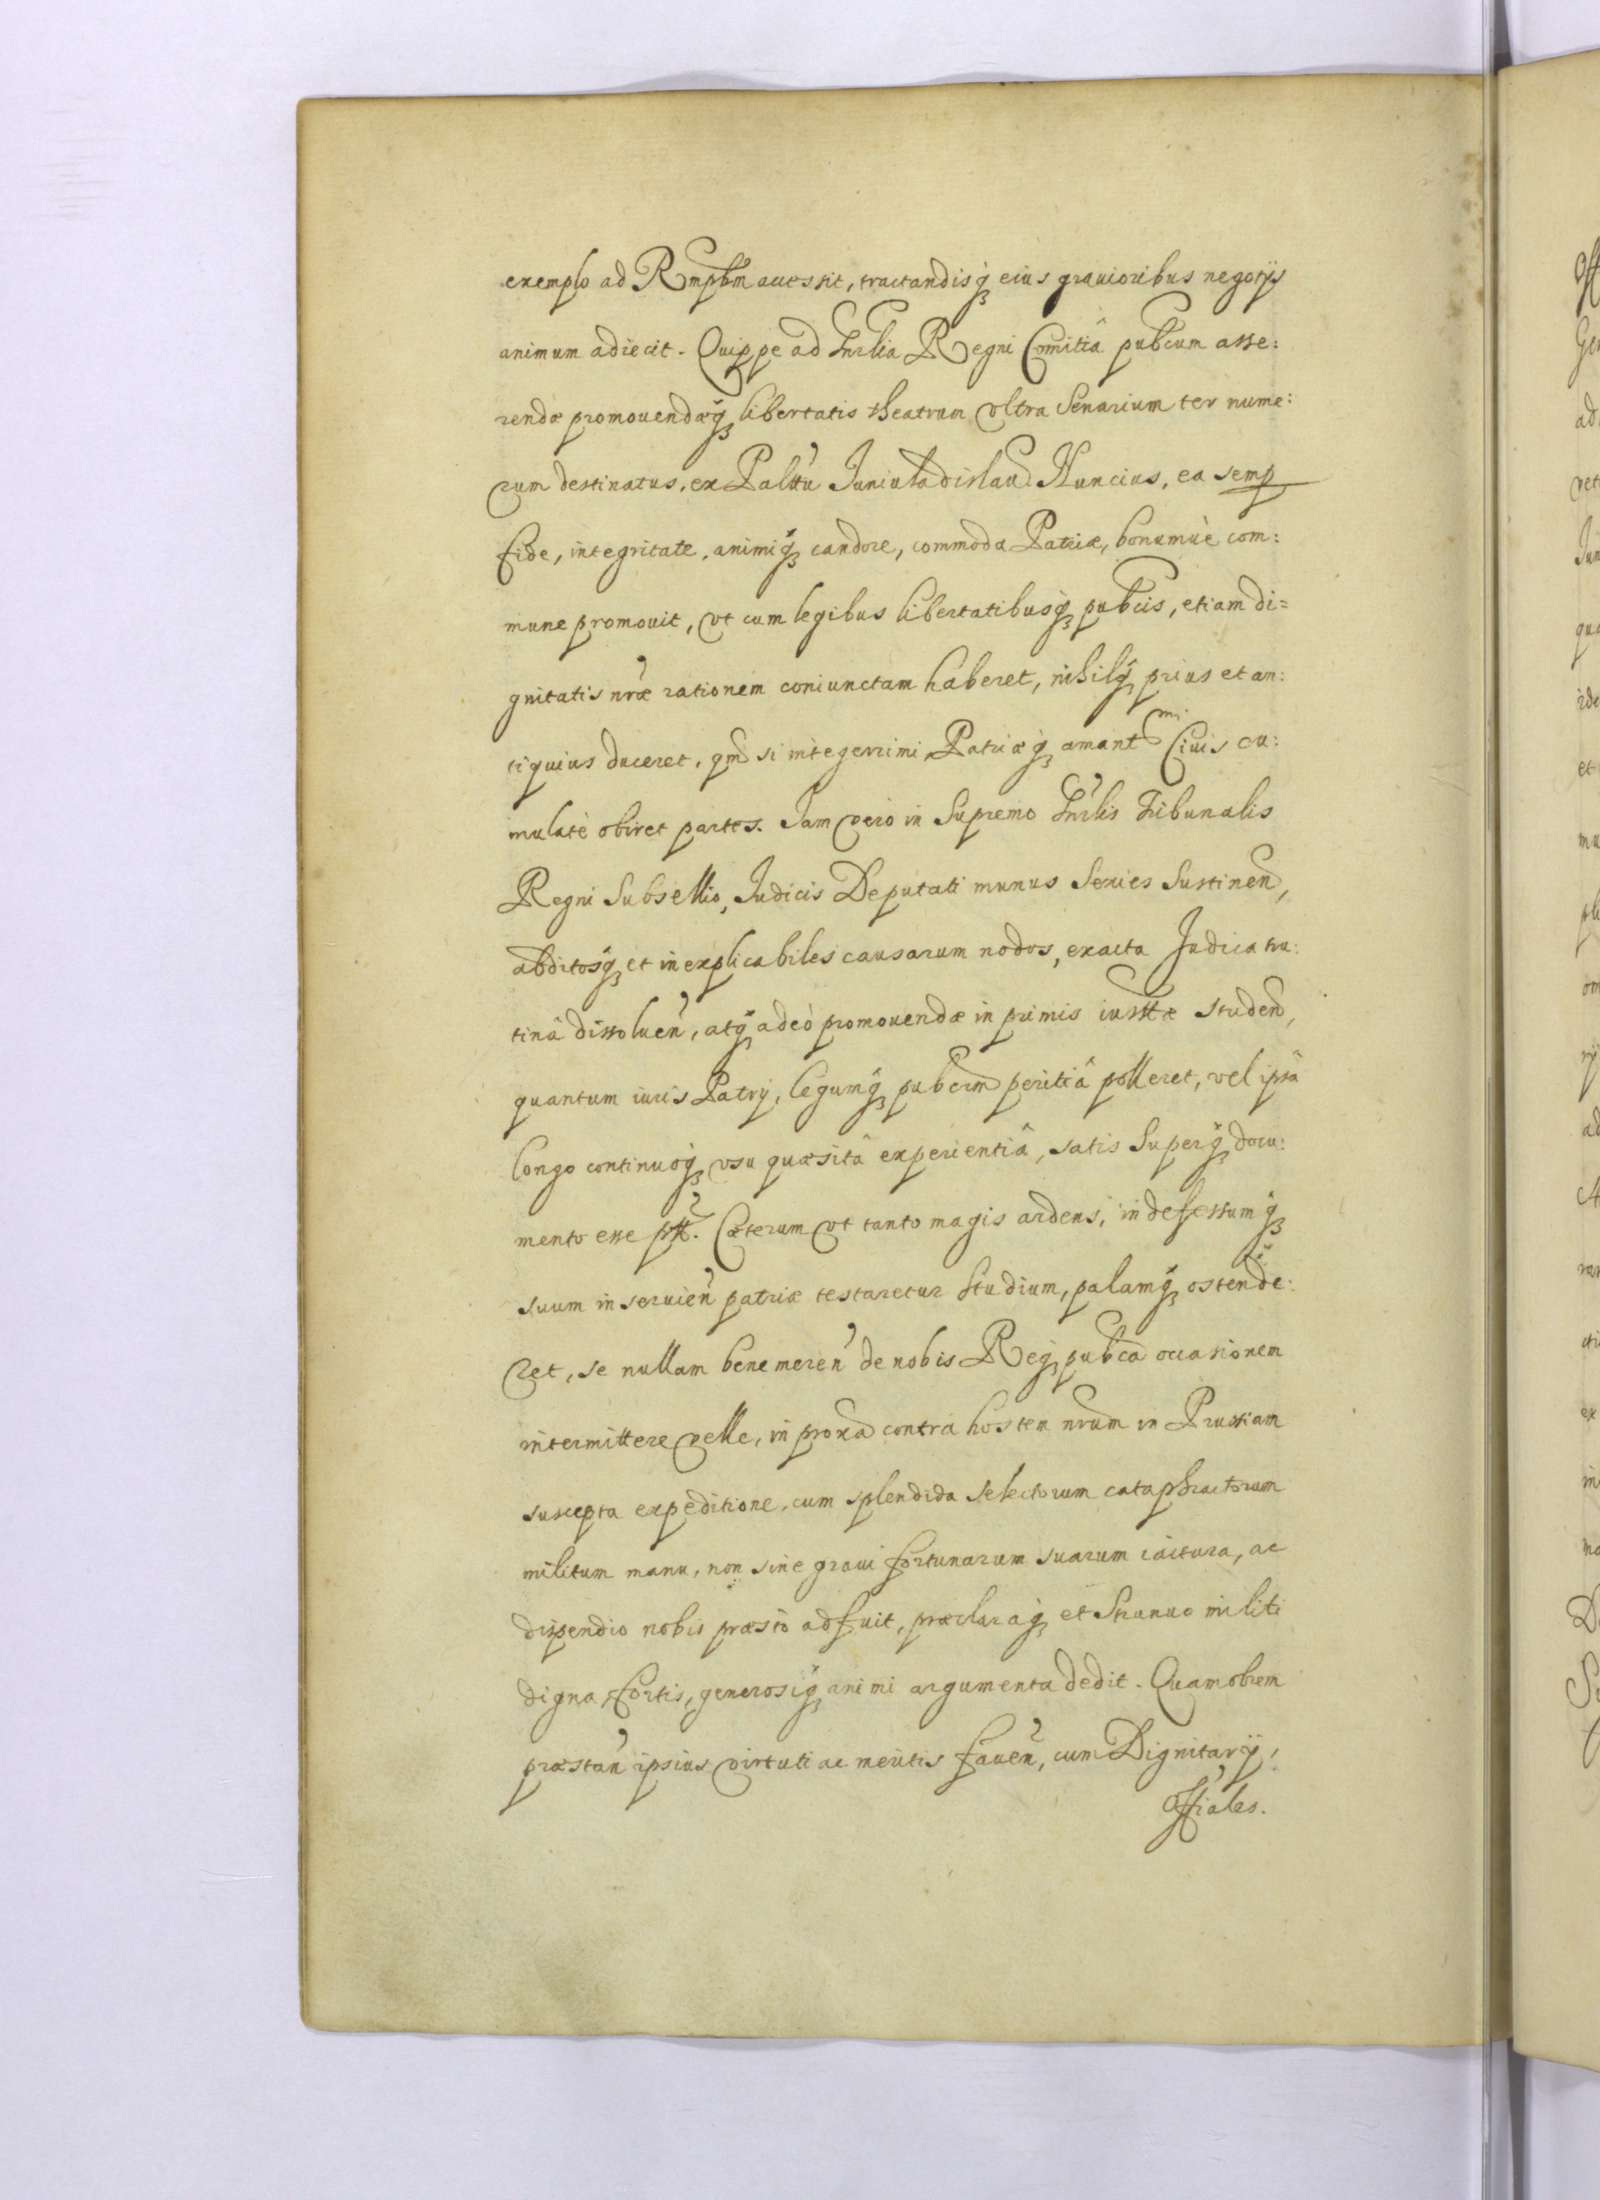 exemplo ad Rempbcm accessit, tractandisq̃ eius grauioribus negotijs
animum adiecit. Quippe ad Gnrlia Regni Comitiâ pubcum asse:
rendæ promouendæq̃ libertatis theatrum vltra Senarium ter nume:
rum destinatus, ex Palttu Juniuladislau. Nuncius, ea semp
fide, integritate, animiq̃ candore, commoda Patriæ, bonumuè com:
mune promouit, vt cum legibus libertatibusq̃ pubcis, etiam di=
gnitatis nræ rationem coniunctam haberet, nihilq̃ prius et an:
tiquius duceret, qm̃ si integerrimi Patriæq̃ amantmi Ciuis cu:
mulatè obiret partes. Jam vero in Supremo Gnrlis Tribunalis
Regni Subsellio, Judicis Deputati munus Sexies Sustinen,
abditosq̃ et inexplicabiles causarum nodos, exacta Judicÿ tru:
tinâ dissoluen, atq̃ adeò promouendæ in primis iusttæ studen,
quantum iuris Patrij, legumq̃ pubcrm peritiâ polleret, vel ipsâ
longo continuoq̃ vsu quæsitâ experientiâ, satis Superq̃ docu:
mento esse ptt. Cæterum vt tanto magis ardens, indefessumq̃
suum inseruien patriæ testaretur Studium, palamq̃ ostende:
ret, se nullam benemeren de nobis Reqʒ pubca occasionem
intermittere velle, in proxa contra hostem nrum in Prussiam
suscepta expeditione, cum splendida selectorum cataphractorum
militum manu, non sine graui fortunarum suarum iactura, ac
dispendio nobis præsto adfuit, præclaraq̃ et Strenuo militi
digna, fortis, generosiq̃ animi argumenta dedit. Quamobrem
præstan ipsius virtuti ac meritis fauen, cum Dignitarij,
Offiales.